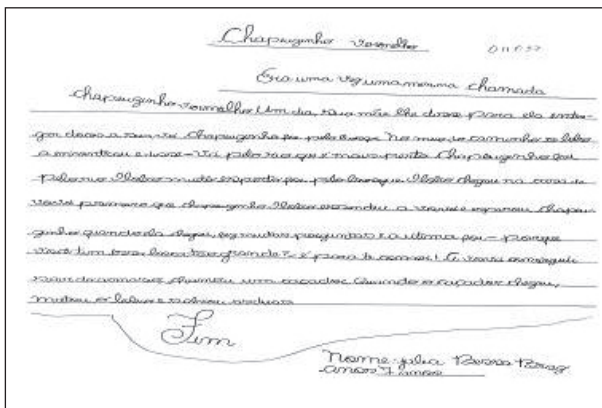 Chapeuzinho vermelho
Era uma vez uma menina chamada
chapeuzinho vermelho Um dia, sua mãe lhe disse para ela entre-
gar doces a sua vó Chapeuzinho foi pelo bosque No meio do caminho o lobo
a encontrou e disse-Vá pelo rio que é mais perto Chapeuzinho foi
pelo rio O lobo muito esperto foi pelo bosque O lobo chegou na casa da
vovó primeiro que chapeuzinho O lobo escondeu a vovó e esperou chapeu-
zinho quando ela chegou, fez muitas perguntas e a ultima foi - porque
você tem essa boca tão grande? - é para te comer! E vovó conseguiu
sair do armario chamou um caçador Quando o caçador chegou,
matou o lobo e salvou as duas
Fim
Nome: Julia
anos 7 anos